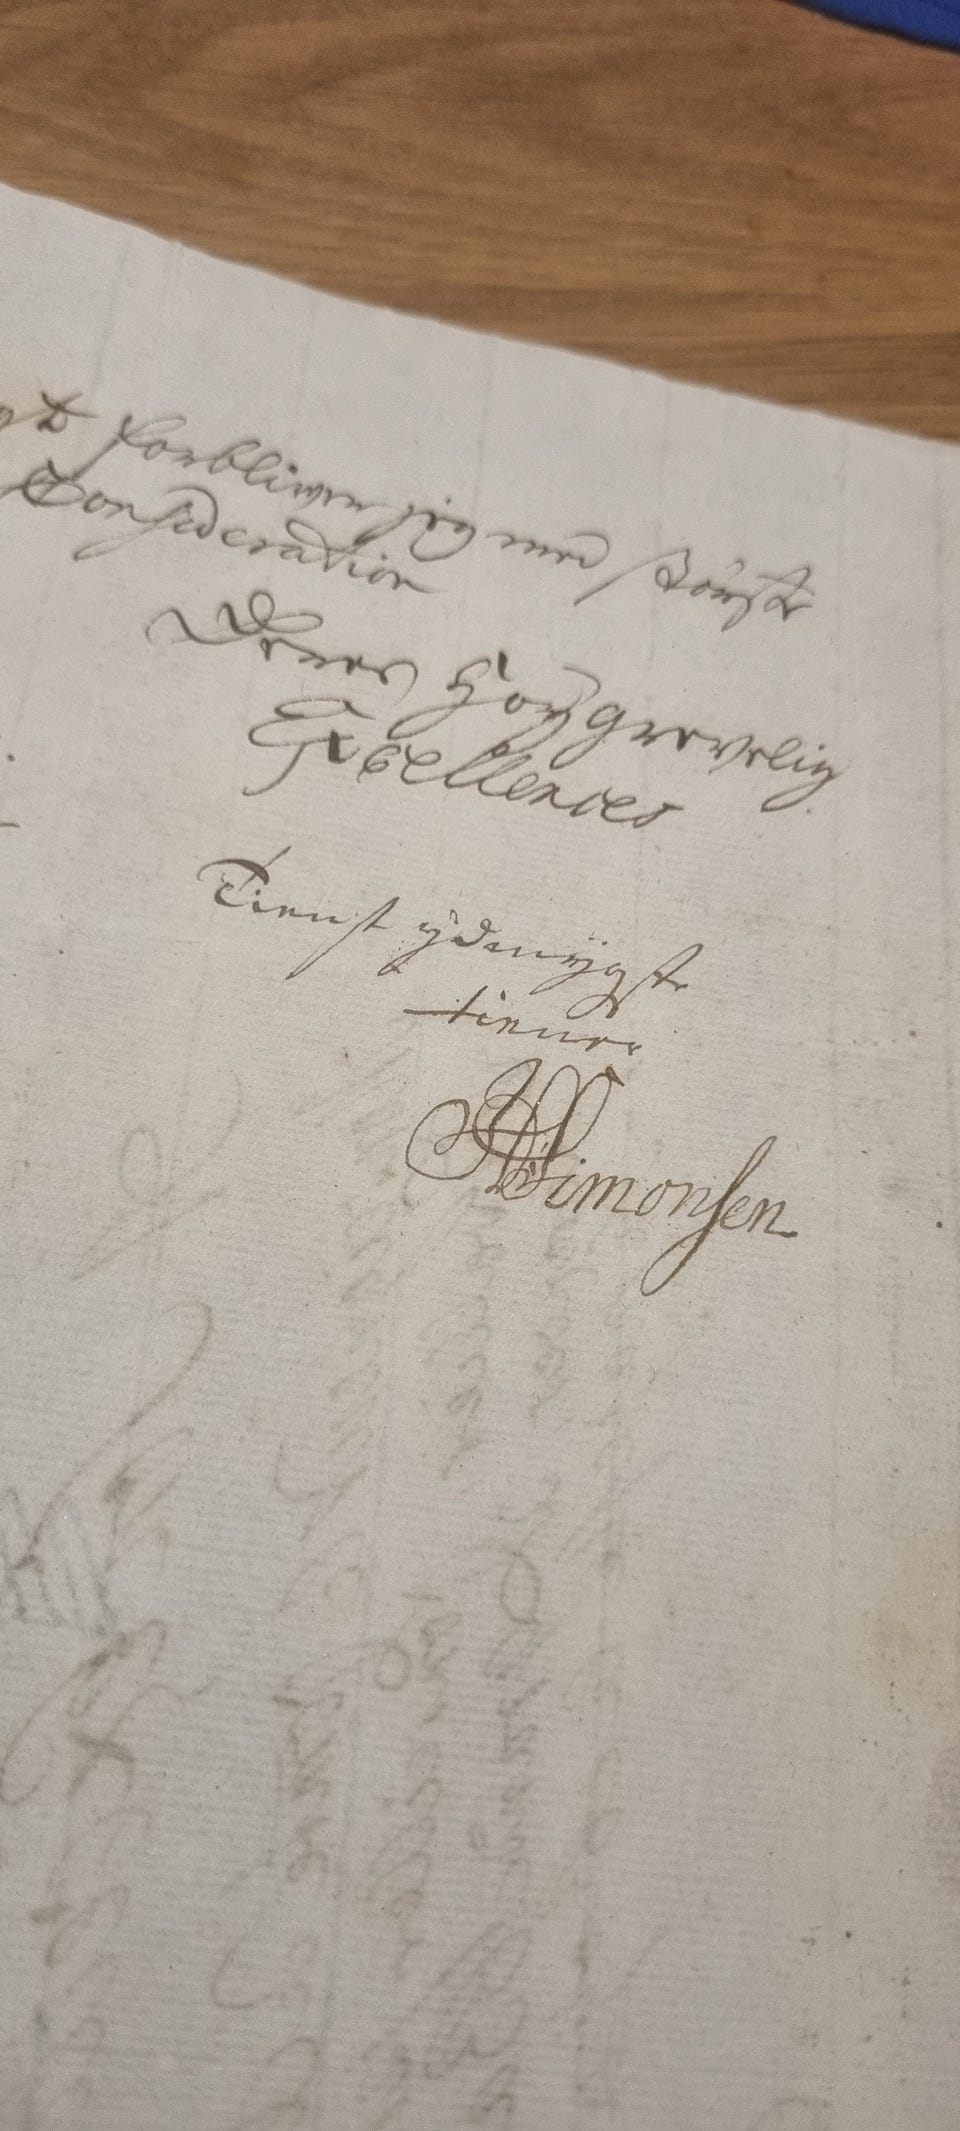 forbliwer jeg med störste
Consideration
Deres Høygrevelig
Excellences
Tienst ÿdmÿgste
tienere
Simonsen